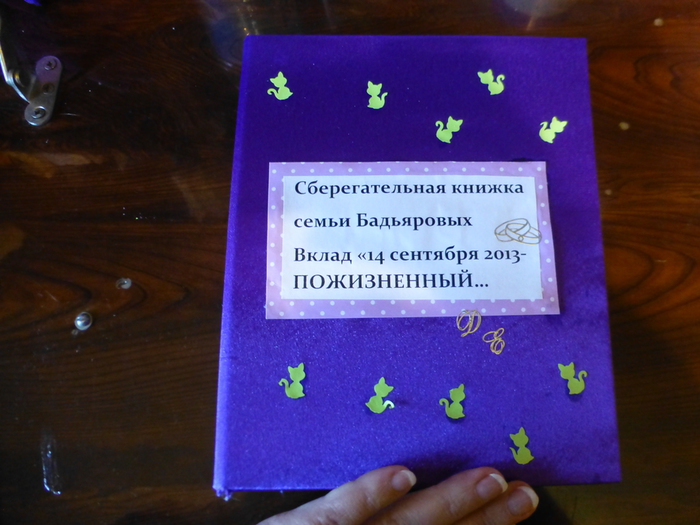 Сберегательная книжка
семьи Бадьяровых
Вклад «14 сентября 2013-
ПОЖИЗНЕННЫЙ...
Д Е